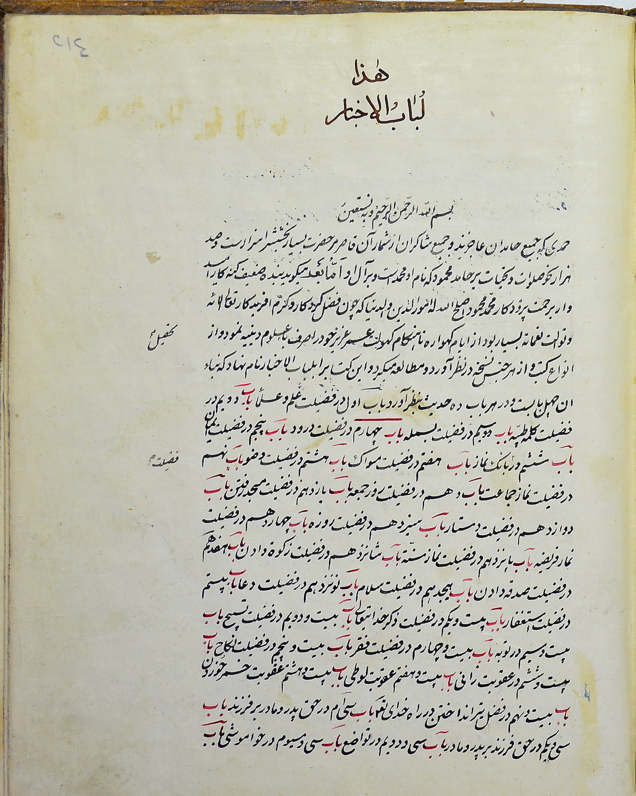 ٢١٤
هذا
لُبابُ الاخبار
بسم الله الرحمن الرحیم وبه نستعین
حمدی که جمیع حامدان عاجزند و جمیع شاکران از شمار آن قاصر بر حضرت بسیار بخشش را سزاست و صد
هزار تحیات بر حامد محمود که نام او محمد است و بر آل و اما بعد میگوید بنده ضعیف
بر رحمت پروردکار محمد محمود اصلح الله له امور الدین والدنیا که چون فضل کردکار و کرم افریدکار تعالی
بسیار بود از ایام کهواره تا هنکام کهولت عمر عزیز خود را صرف باعلوم دینیه نمود و از
تحصیل
انواع کتب و از هر جنس نسخ در نظر آورد و مطالعه میکرد و این کتاب را لباب الاخبار نام نهاد که بناء
ان چهل باب است و در هر باب ده حدیث بنظر آورد باب اول در فضیلت علم و علما باب دویم در
فضیلت کلمه طیبه باب سیم در فضیلت بسمله باب چهارم در فضیلت درود باب پنجم در فضیلت ایمان
باب ششم در بانک نماز باب هفتم در فضیلت مسواک باب هشتم در فضیلت وضو باب نهم
فضیلت
در فضیلت نماز جماعت باب دهم در فضیلت روز جمعه باب یازدهم در فضیلت مسجد رفتن باب
دوازدهم در فضیلت دستار باب سیزدهم در فضیلت روزه باب چهاردهم در فضیلت
نماز فریضه باب پانزدهم در فضیلت نماز سنة باب شانزدهم در فضیلت زکوة دادن باب هفدهم
در فضیلت صدقه دادن باب هیجدهم در فضیلت سلام باب نوزدهم در فضیلت دعا باب بیستم
در فضیلت استغفار باب بیست و یکم در فضیلت ذکر خدایتعالی باب بیست و دویم در فضیلت تسبیح باب
بیست و سیم در توبه باب بیست و چهارم در فضیلت فقر باب بیست و پنجم در فضیلت نکاح باب
بیست و ششم در عقوبت زانی باب بیست و هفتم عقوبت لوطی باب بیست و هشتم عقوبت خمر خوردن
باب بیست و نهم در فضل تیر انداختن در راه خدای تعالی باب سی‌ام در حق پدر و مادر بر فرزند باب
سی و یکم در حق فرزند بر پدر و مادر باب سی و دویم در تواضع باب سی و سیوم در خواموشی باب